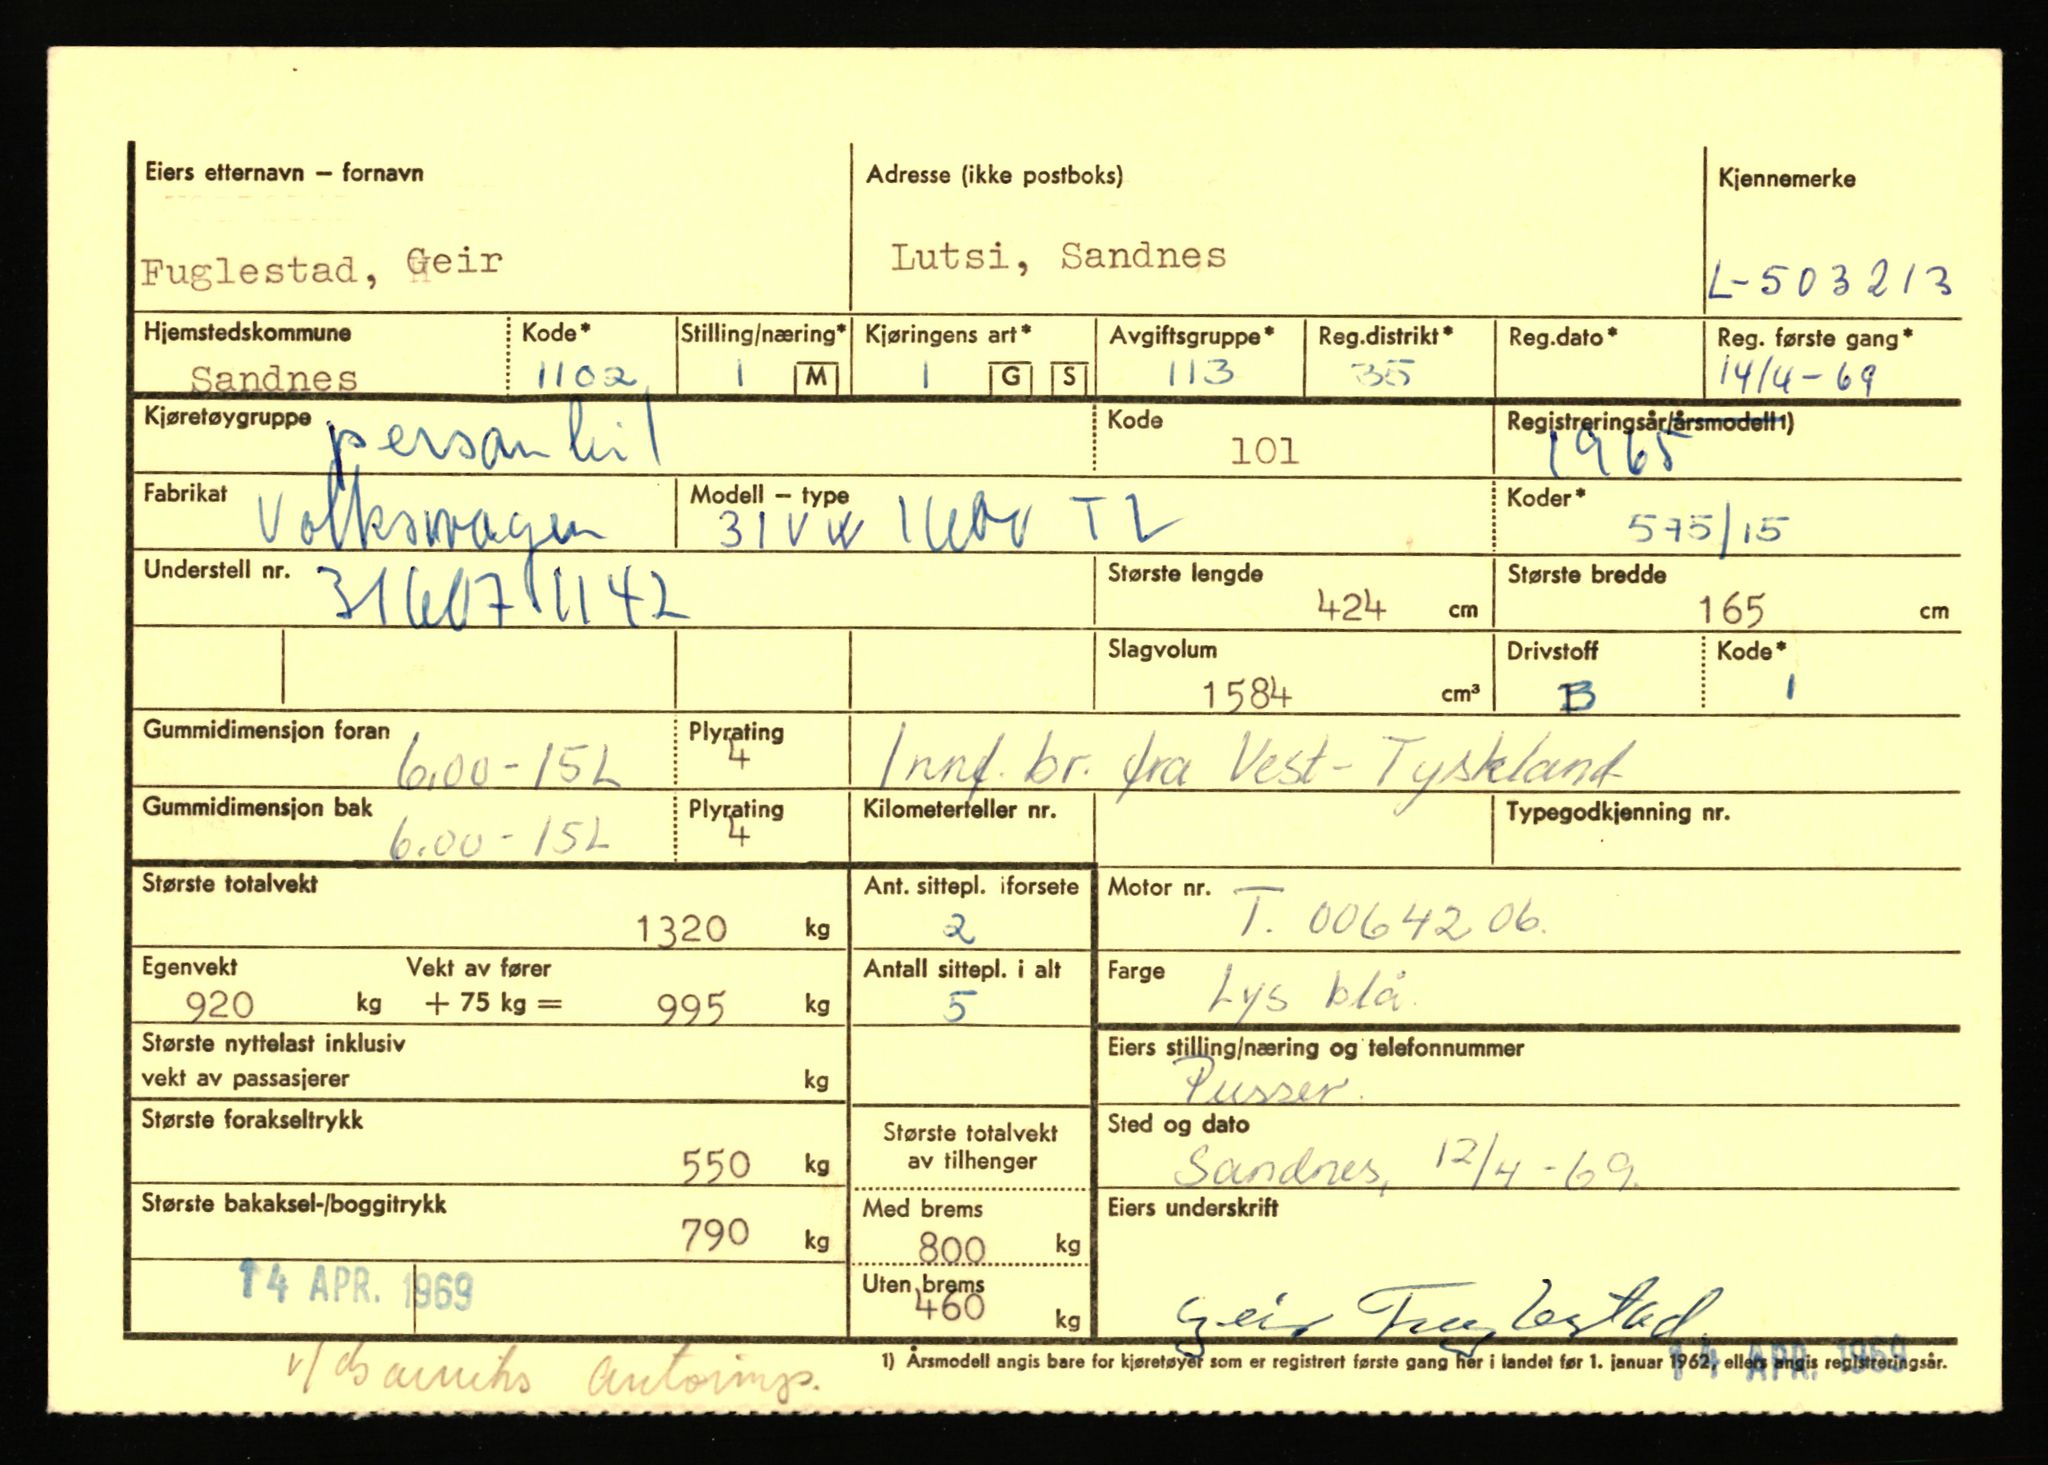 Eiers etternavn – fornavn Adresse (ikke postboks) Kjennemerke
Fuglestad, Geir Lutsi, Sandnes L-503213
Hjemstedskommune Kode* Stilling/næring* Kjøringens art* Avgiftsgruppe* Reg.distrikt* Reg.dato* Reg. første gang*
Sandnes 1102 1 M 1 G S 113 35 14/4-69
Kjøretøygruppe Kode Registreringsår/årsmodell 1)
personbil 101 1965
Fabrikat Modell – type Koder*
Volkswagen 31 VW 1600 TL 575/15
Understell nr. Største lengde Største bredde
316071142 424 cm 165 cm
Slagvolum Drivstoff Kode*
1584 cm³ B 1
Gummidimensjon foran Plyrating
6.00-15L 4 Innf. br. fra Vest-Tyskland
Gummidimensjon bak Plyrating Kilometerteller nr. Typegodkjenning nr.
6.00-15L 4
Største totalvekt Ant. sittepl. iforsete Motor nr.
1320 kg 2 T. 0064206.
Egenvekt Vekt av fører Antall sittepl. i alt Farge
920 kg + 75 kg = 995 kg 5 Lys blå.
Største nyttelast inklusiv Eiers stilling/næring og telefonnummer
vekt av passasjerer kg Pusser.
Største forakseltrykk Største totalvekt Sted og dato
550 kg av tilhenger Sandnes, 12/4-69.
Største bakaksel-/boggitrykk Med brems Eiers underskrift
790 kg 800 kg
14 APR. 1969 Uten brems
460 kg Geir Fuglestad
1) Årsmodell angis bare for kjøretøyer som er registrert første gang her i landet før 1. januar 1962, ellers angis registreringsår.
14 APR. 1969